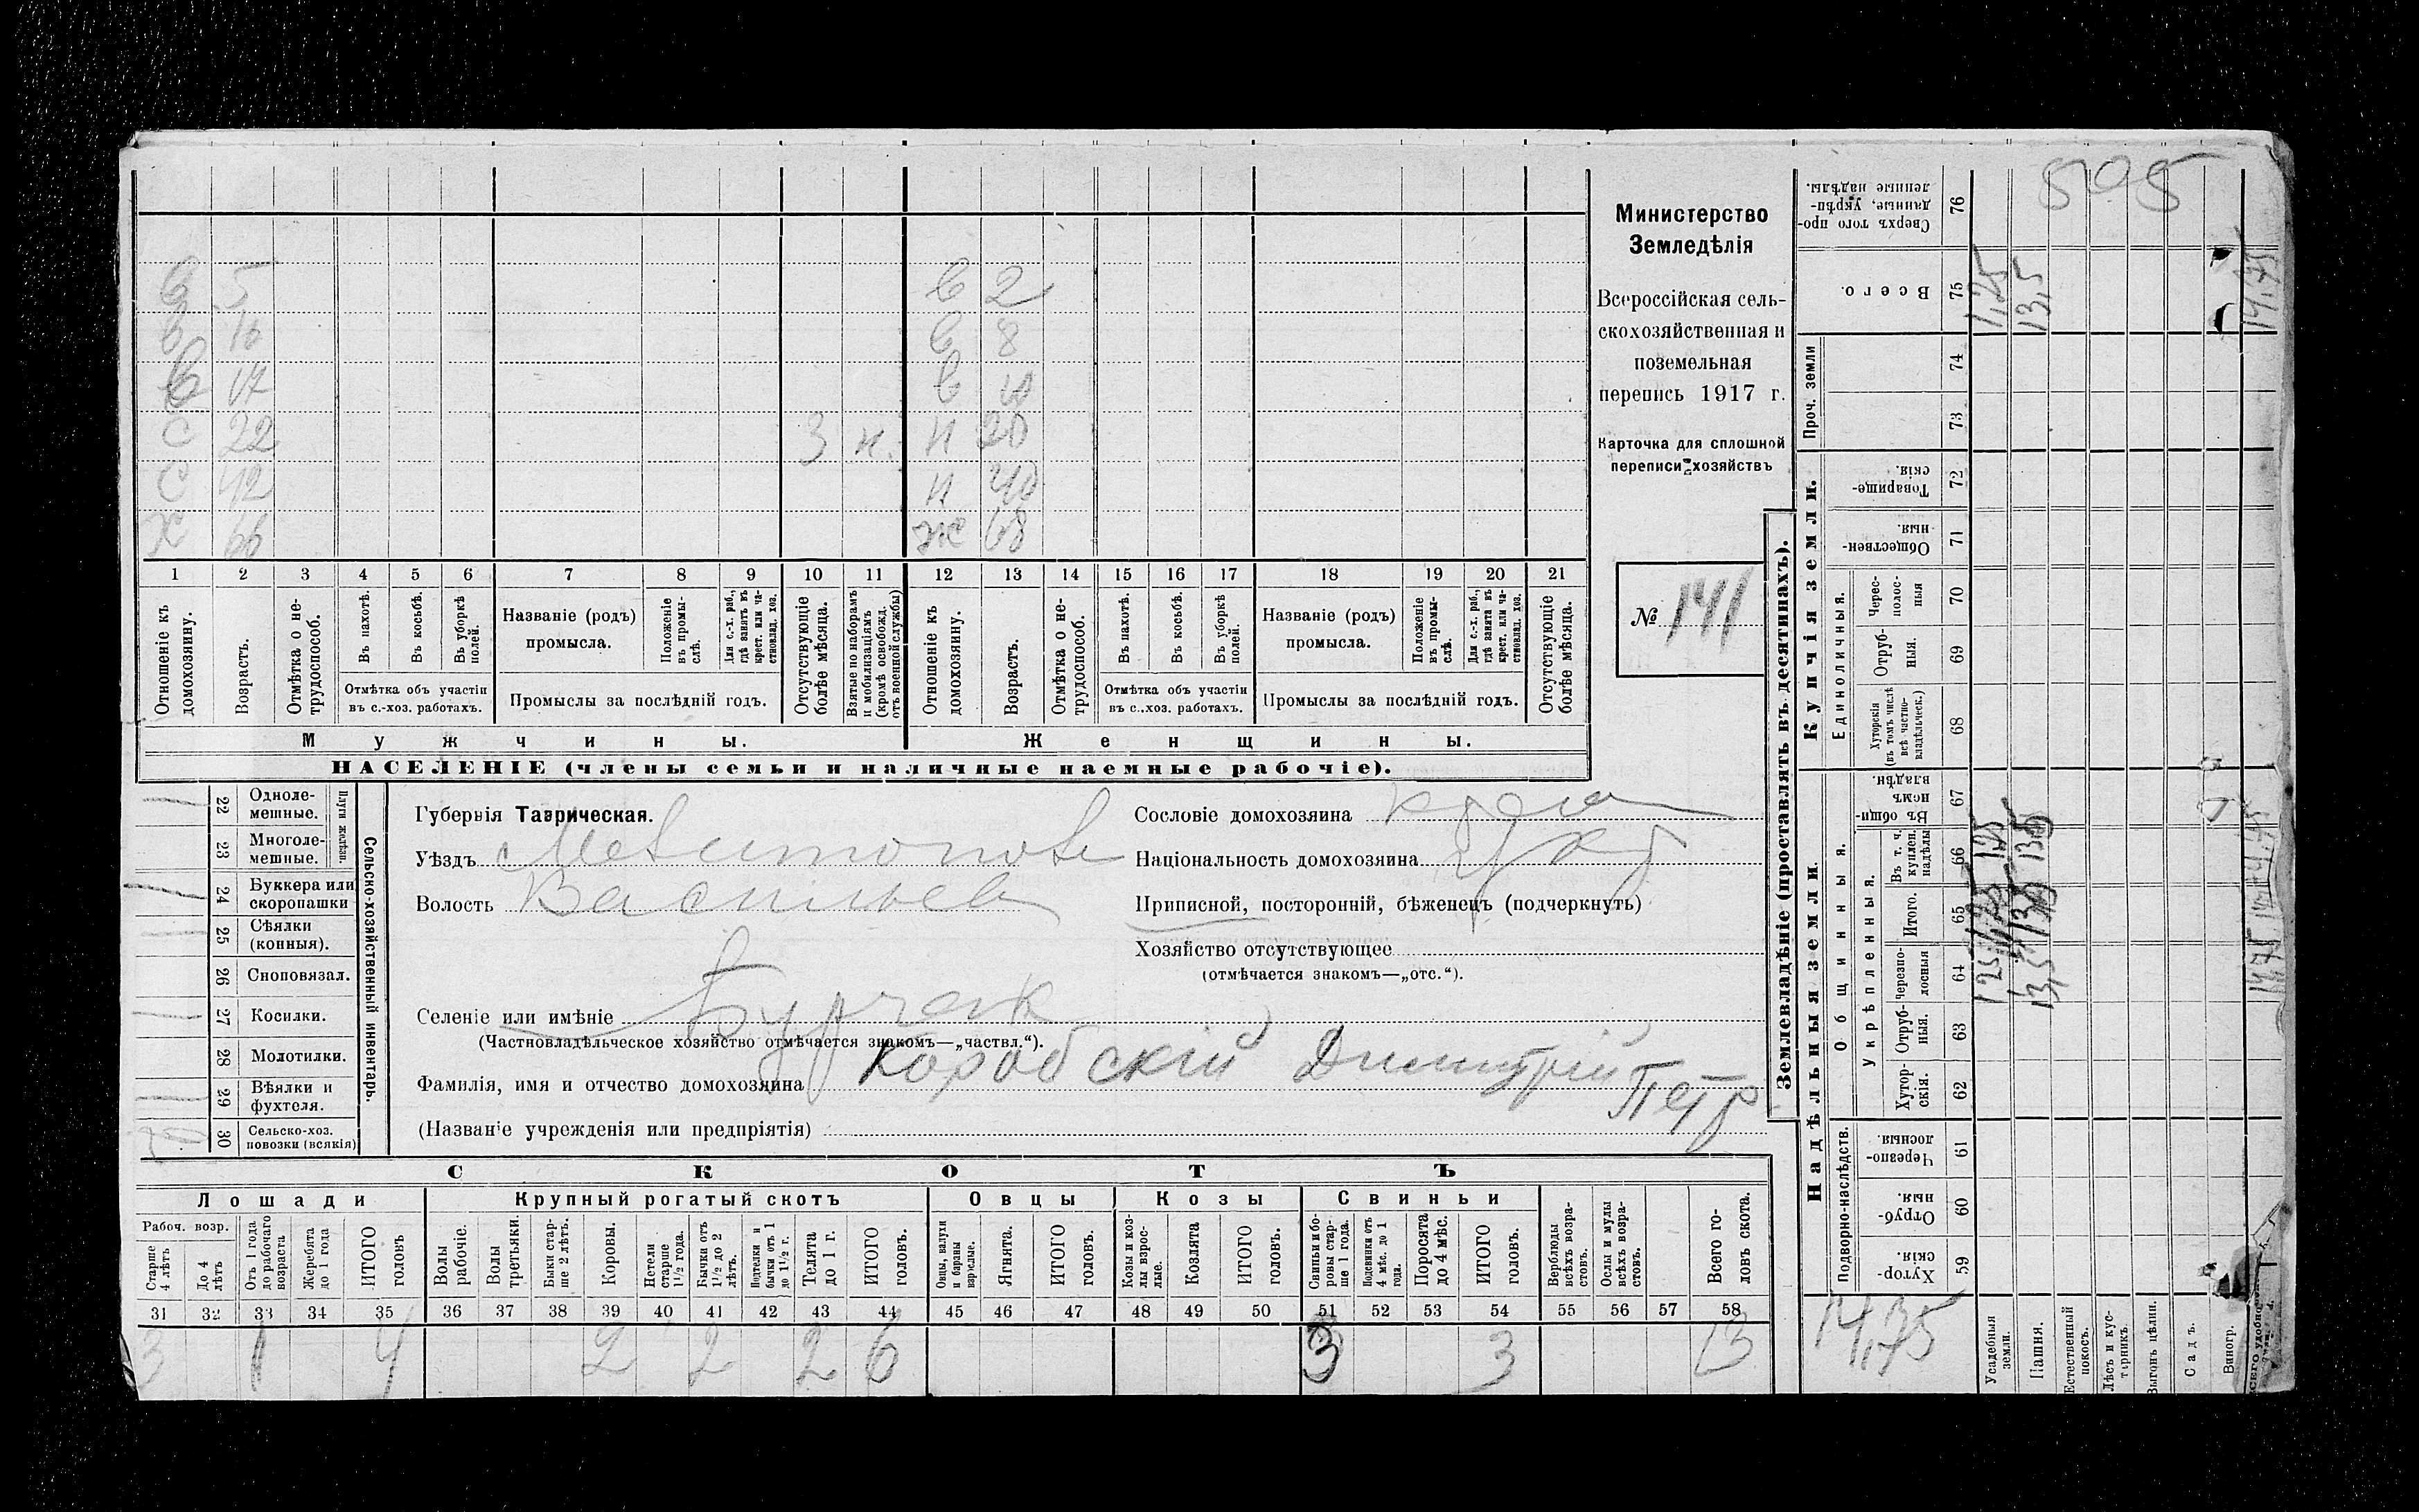 505
Министерство
Земледѣлія
Всероссійская сель-
скохозяйственная и
поземельная
перепись 1917 г.
Карточка для сплошной
переписи хозяйствъ
№ 141
в 5 в 2
в 10 в 8
в 17 в 10
с 22 3 н. н 20
с 42 н 40
х 66 ж 68
1 2 3 4 5 6 7 8 9 10 11 12 13 14 15 16 17 18 19 20 21
Отношеніе къ домохозяину.
Возрастъ.
Отмѣтка о не-трудоспособ.
Въ пахотѣ.
Въ косьбѣ.
Въ уборкѣ полей.
Отмѣтка объ участіи
въ с.-хоз. работахъ.
Названіе (родъ)
промысла.
Положеніе въ промы-слѣ.
Для с.-х. раб., гдѣ занятъ въ крест. или ча-стновлад. хоз.
Промыслы за послѣдній годъ.
Отсутствующіе болѣе мѣсяца.
Взятые по наборамъ и мобилизаціямъ (кромѣ освобожд. отъ военной службы)
Отношеніе къ домохозяину.
Возрастъ.
Отмѣтка о не-трудоспособ.
Въ пахотѣ.
Въ косьбѣ.
Въ уборкѣ полей.
Отмѣтка объ участіи
въ с.-хоз. работахъ.
Названіе (родъ)
промысла.
Положеніе въ промы-слѣ.
Для с.-х. раб., гдѣ занята въ крест. или ча-стновлад. хоз.
Промыслы за послѣдній годъ.
Отсутствующіе болѣе мѣсяца.
Мужчины. Женщины.
НАСЕЛЕНІЕ (члены семьи и наличные наемные рабочіе).
Сельско-хозяйственный инвентарь.
Плуги желѣзн.
22 Одноле-мешные.
23 Многоле-мешные.
24 Буккера или скоропашки
25 Сѣялки (конныя).
26 Сноповязал.
27 Косилки.
28 Молотилки.
29 Вѣялки и фухтеля.
30 Сельско-хоз. повозки (всякія)
Губернія Таврическая.
Уѣздъ Мелитопол
Волость Васильев
Селеніе или имѣніе Бурчак
(Частновладѣльческое хозяйство отмѣчается знакомъ—„частвл.“).
Фамилія, имя и отчество домохозяина Коробскій Димитрій Петр
(Названіе учрежденія или предпріятія)
Сословіе домохозяина
Національность домохозяина Укр
Приписной, посторонній, бѣженецъ (подчеркнуть)
Хозяйство отсутствующее
(отмѣчается знакомъ—„отс.“).
СКОТЪ
Лошади Крупный рогатый скотъ Овцы Козы Свиньи
Рабоч. возр.
Старше 4 лѣтъ
До 4 лѣтъ
Отъ 1 года до рабочаго возраста
Жеребята до 1 года
ИТОГО головъ
Волы рабочіе.
Волы третьяки.
Быки стар-ше 2 лѣтъ.
Коровы.
Нетели старше 1½ года.
Бычки отъ 1½ до 2 лѣтъ.
Подтелки и бычки отъ 1 до 1½ г.
Телята до 1 г.
ИТОГО головъ.
Овцы, валухи и бараны взрослые.
Ягнята.
ИТОГО головъ.
Козы и коз-лы взрос-лые.
Козлята
ИТОГО головъ.
Свиньи бо-ровы стар-ше 1 года.
Подсвинки отъ 4 мѣс. до 1 года.
Поросята до 4 мѣс.
ИТОГО головъ.
Верблюды всѣхъ возра-стовъ.
Ослы и мулы всѣхъ возра-стовъ.
Всего го-ловъ скота.
31 32 33 34 35 36 37 38 39 40 41 42 43 44 45 46 47 48 49 50 51 52 53 54 55 56 57 58
3 1 4 2 2 2 6 3 3 13
Землевладѣніе (проставлять въ десятинахъ).
Надѣльныя земли. Купчія земли. Проч. земли
Подворно-наслѣдств.
Общинныя.
Укрѣпленныя.
Единоличныя.
Хутор-скія. 59
Отруб-ныя. 60
Черезпо-лосныя. 61
Хутор-скія. 62
Отруб-ныя. 63
Черезпо-лосныя 64
Итого. 65
Въ т. ч. куплен. надѣлы 66
Въ общин-номъ владѣн. 67
Хуторскія (въ томъ числѣ всѣ частно-владѣльческ.) 68
Отруб-ныя. 69
Черес-полос-ныя 70
Обществен-ныя. 71
Товарище-скія. 72
73
74
Всего. 75
Сверхъ того про-данные, укрѣп-ленные надѣлы. 76
Усадебныя земли. 1,25 1,25 1,25 1,25
Пашня. 13,5 13,5 13,5 13,5
Естественный покосъ.
Лѣсъ и кус-тарникъ.
Выгонъ цѣлин.
Садъ.
Виногр.
14,75 14,75 14,75
14,75